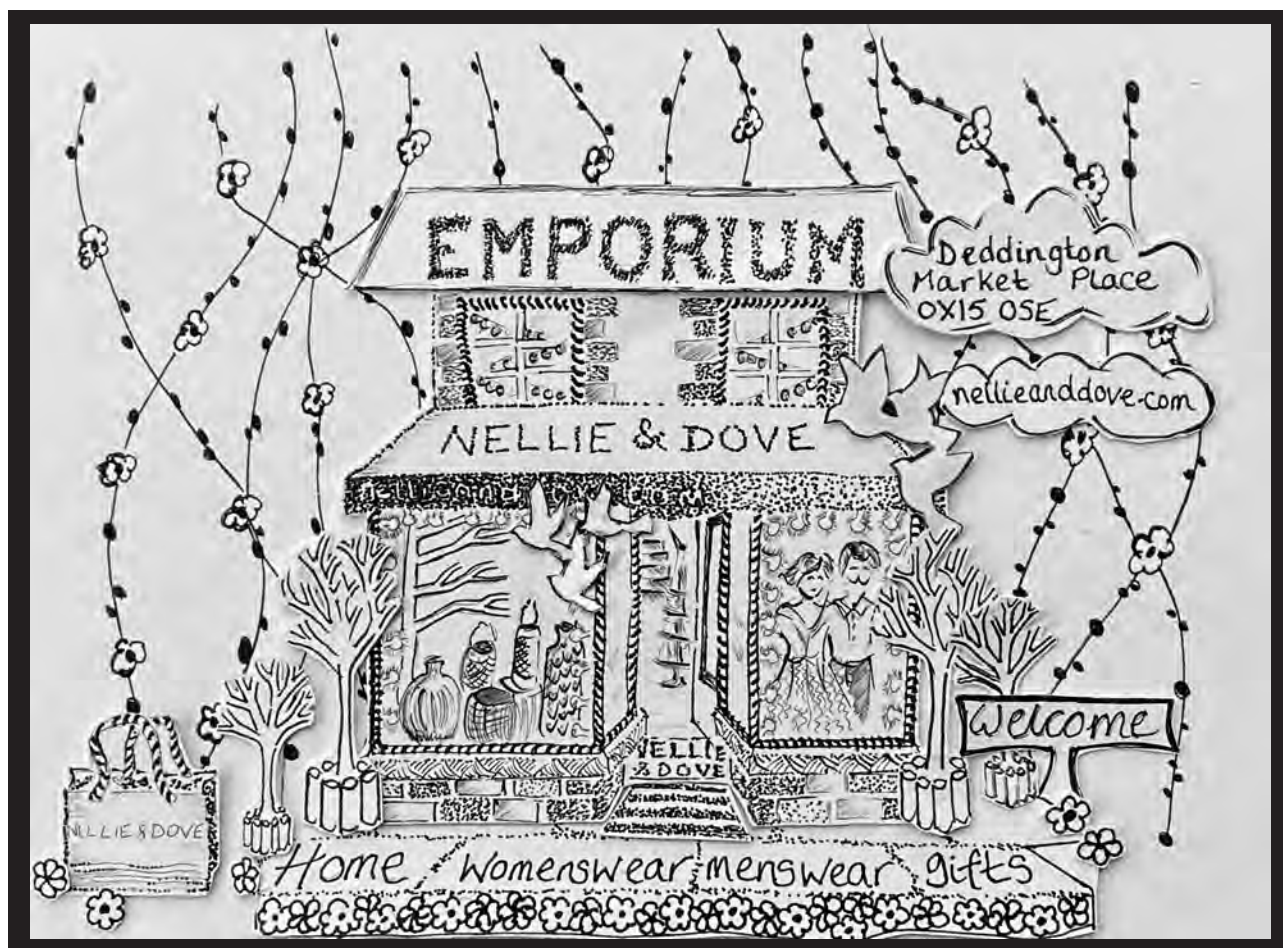 EMPORIUM
Deddington
Market Place
OX15 0SE
nellieanddove.com
NELLIE & DOVE
Welcome
NELLIE
& DOVE
NELLIE & DOVE
Home Womenswear menswear gifts